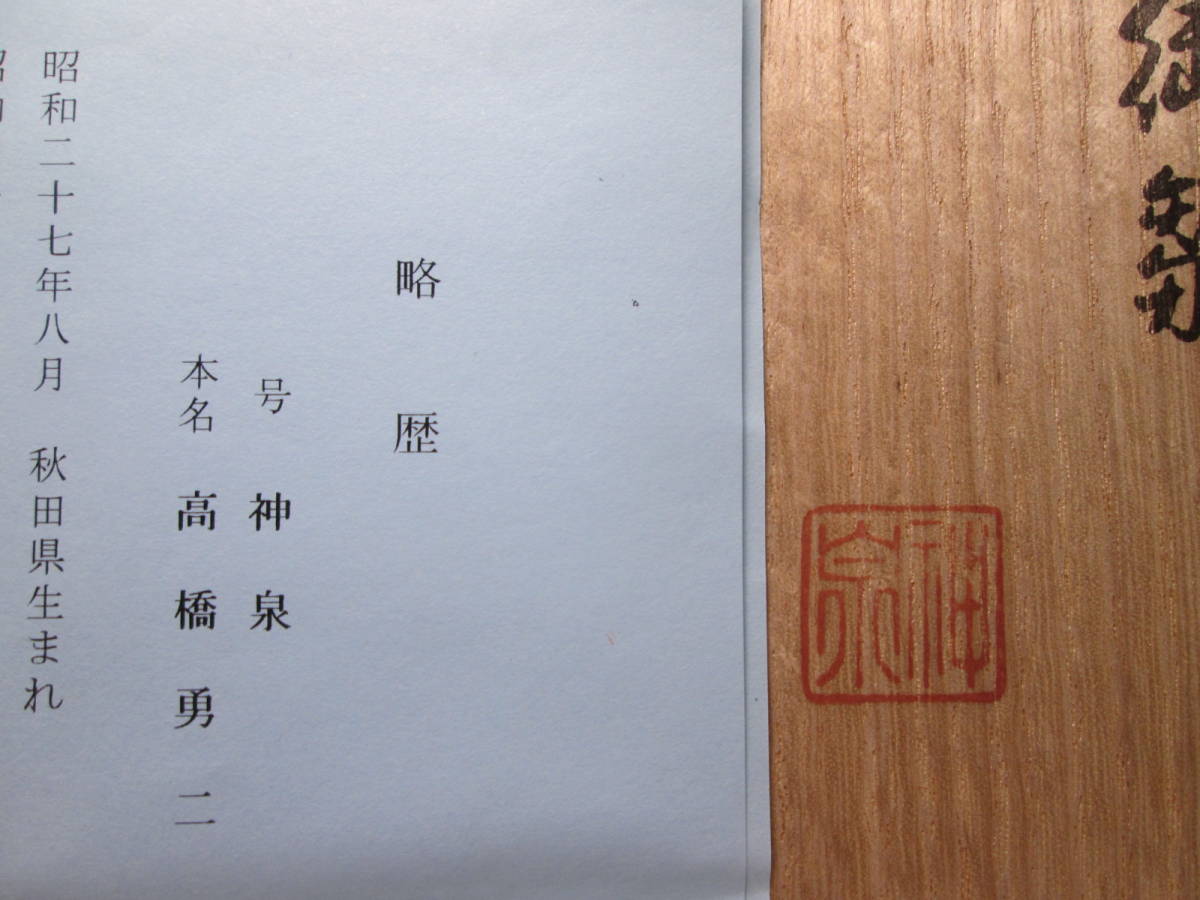 神泉
略歴
号 神泉
本名 高橋勇二
昭和二十七年八月 秋田県生まれ